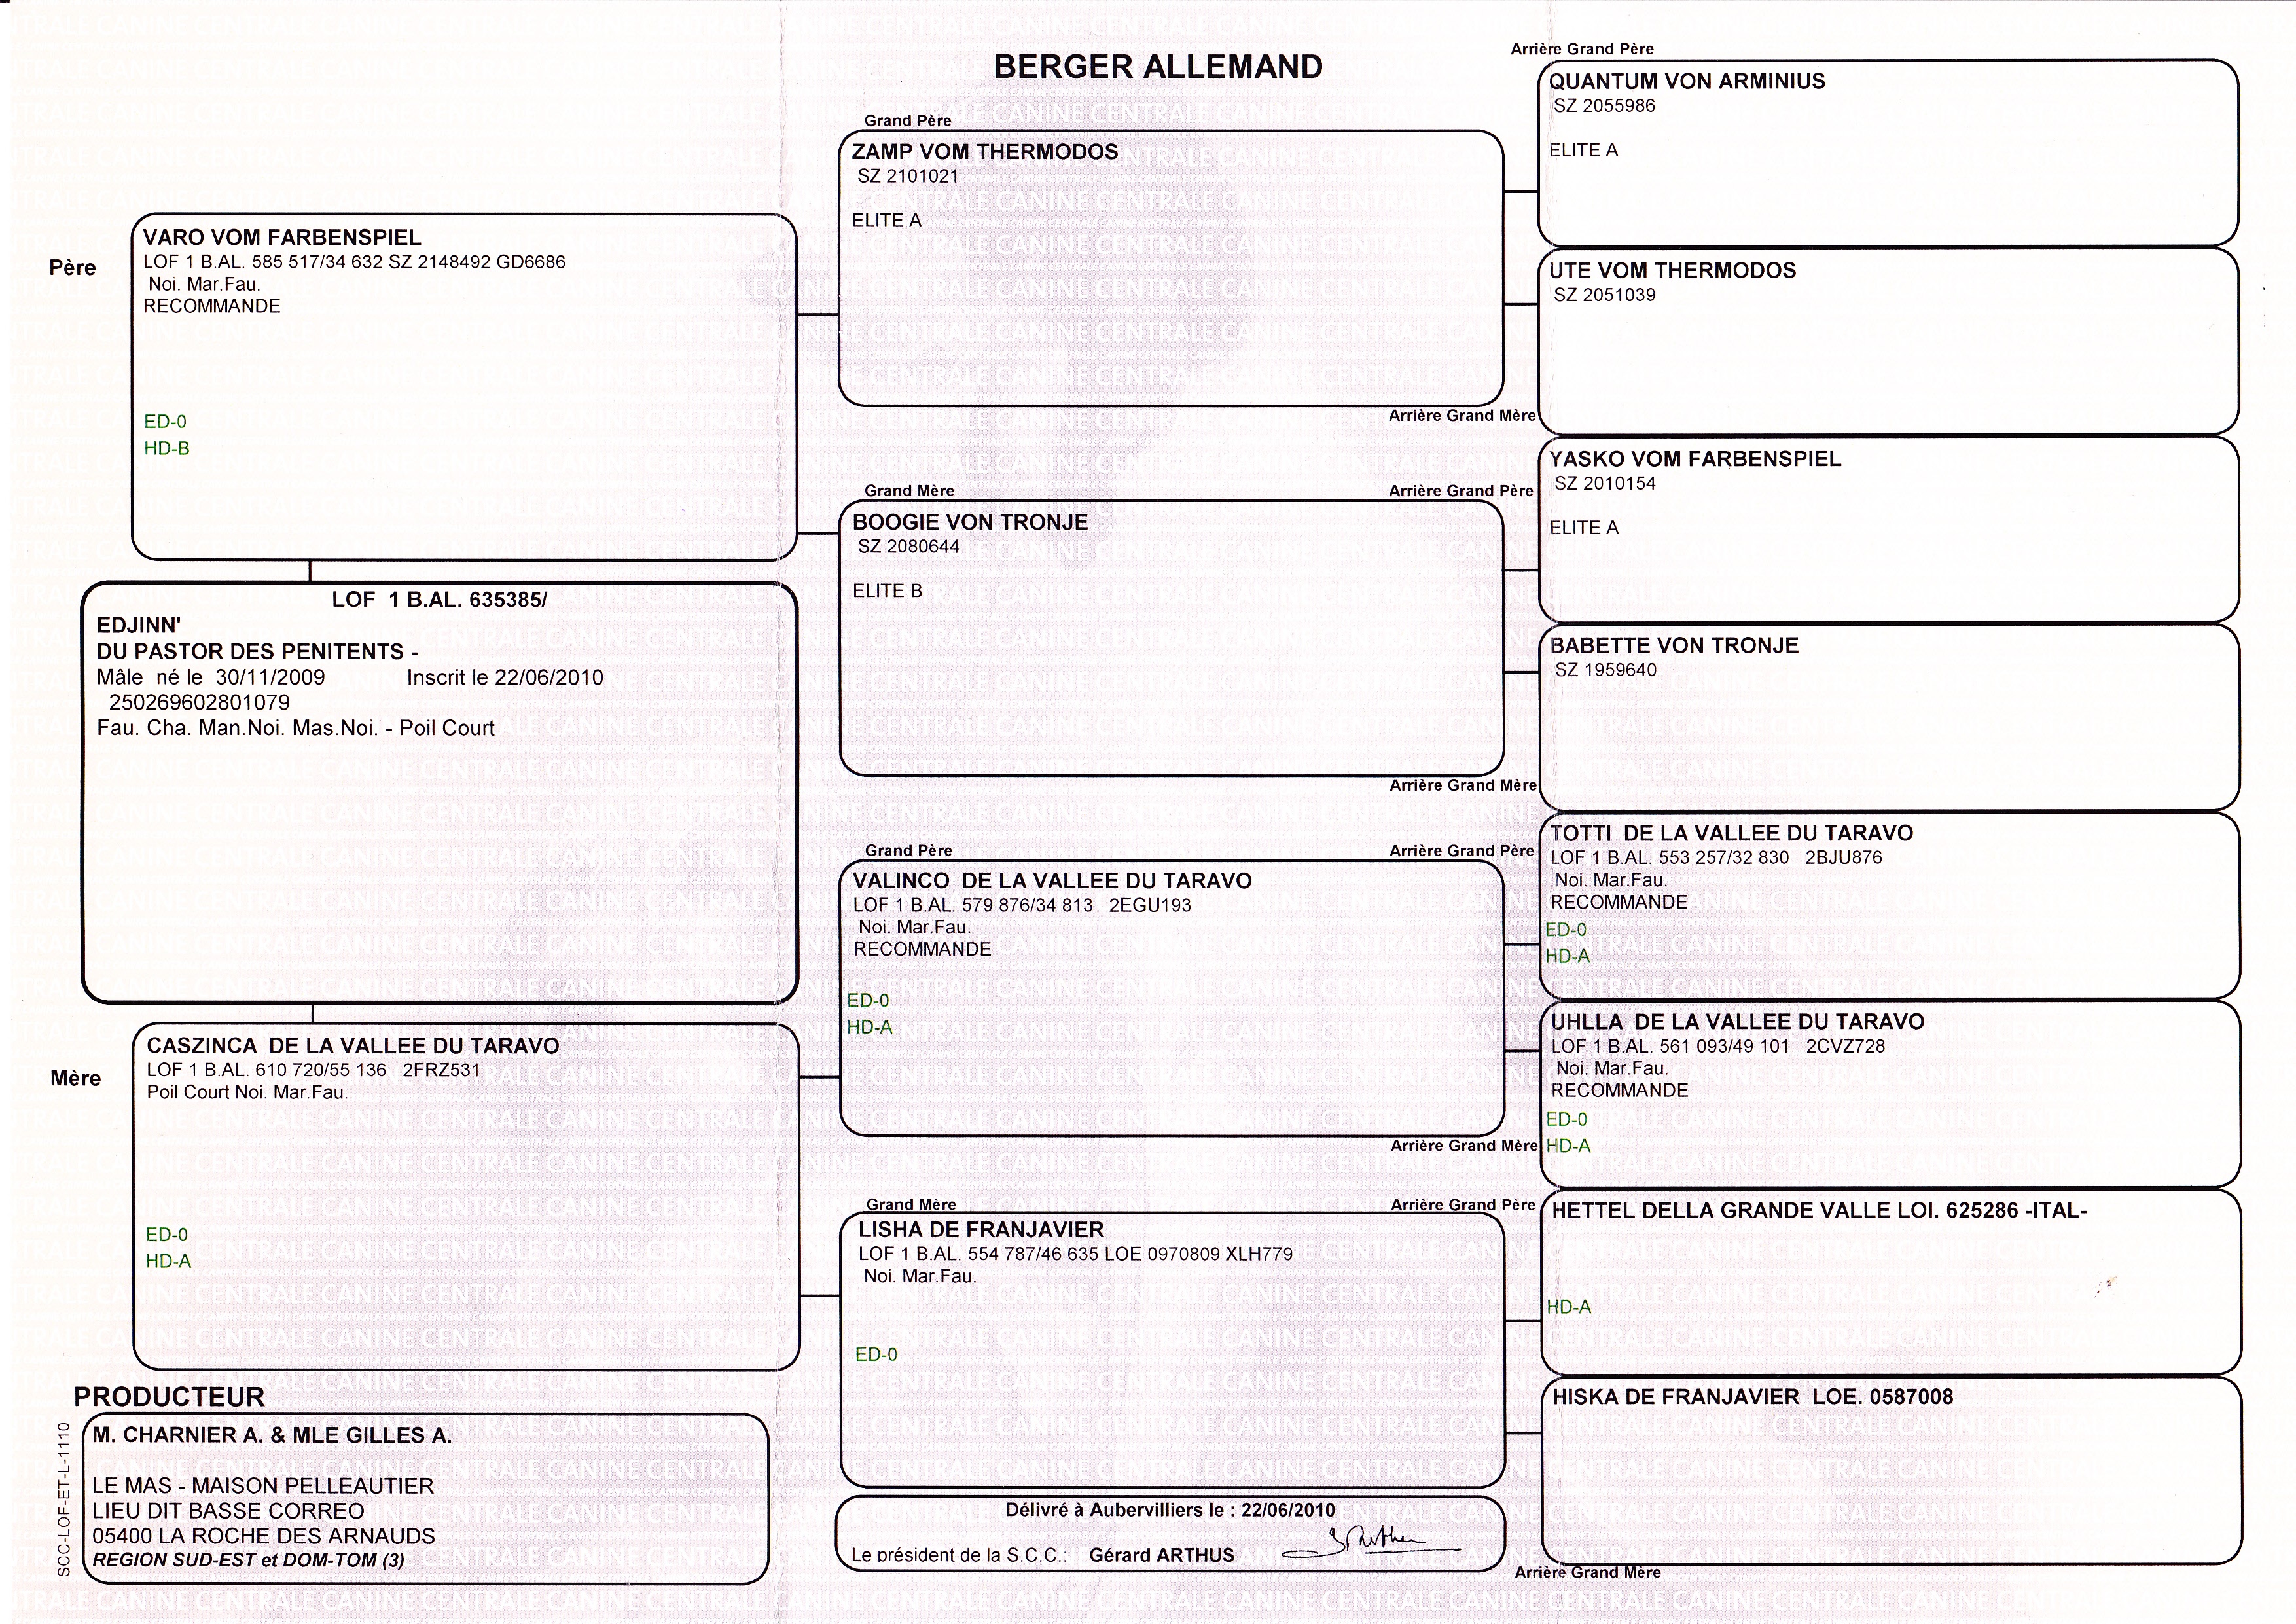 BERGER ALLEMAND
Père
VARO VOM FARBENSPIEL
LOF 1 B.AL. 585 517/34 632 SZ 2148492 GD6686
Noi. Mar.Fau.
RECOMMANDE
ED-0
HD-B
LOF 1 B.AL. 635385/
EDJINN'
DU PASTOR DES PENITENTS -
Mâle né le 30/11/2009 Inscrit le 22/06/2010
250269602801079
Fau. Cha. Man.Noi. Mas.Noi. - Poil Court
Mère
CASZINCA DE LA VALLEE DU TARAVO
LOF 1 B.AL. 610 720/55 136 2FRZ531
Poil Court Noi. Mar.Fau.
ED-0
HD-A
PRODUCTEUR
M. CHARNIER A. & MLE GILLES A.
LE MAS - MAISON PELLEAUTIER
LIEU DIT BASSE CORREO
05400 LA ROCHE DES ARNAUDS
REGION SUD-EST et DOM-TOM (3)
SCC-LOF-ET-L-1110
Grand Père
ZAMP VOM THERMODOS
SZ 2101021
ELITE A
Grand Mère
BOOGIE VON TRONJE
SZ 2080644
ELITE B
Grand Père
VALINCO DE LA VALLEE DU TARAVO
LOF 1 B.AL. 579 876/34 813 2EGU193
Noi. Mar.Fau.
RECOMMANDE
ED-0
HD-A
Grand Mère
LISHA DE FRANJAVIER
LOF 1 B.AL. 554 787/46 635 LOE 0970809 XLH779
Noi. Mar.Fau.
ED-0
Délivré à Aubervilliers le : 22/06/2010
Le président de la S.C.C.: Gérard ARTHUS
Arrière Grand Père
QUANTUM VON ARMINIUS
SZ 2055986
ELITE A
UTE VOM THERMODOS
SZ 2051039
Arrière Grand Mère
Arrière Grand Père
YASKO VOM FARBENSPIEL
SZ 2010154
ELITE A
BABETTE VON TRONJE
SZ 1959640
Arrière Grand Mère
Arrière Grand Père
TOTTI DE LA VALLEE DU TARAVO
LOF 1 B.AL. 553 257/32 830 2BJU876
Noi. Mar.Fau.
RECOMMANDE
ED-0
HD-A
UHLLA DE LA VALLEE DU TARAVO
LOF 1 B.AL. 561 093/49 101 2CVZ728
Noi. Mar.Fau.
RECOMMANDE
ED-0
Arrière Grand Mère
HD-A
Arrière Grand Père
HETTEL DELLA GRANDE VALLE LOI. 625286 -ITAL-
HD-A
HISKA DE FRANJAVIER LOE. 0587008
Arrière Grand Mère